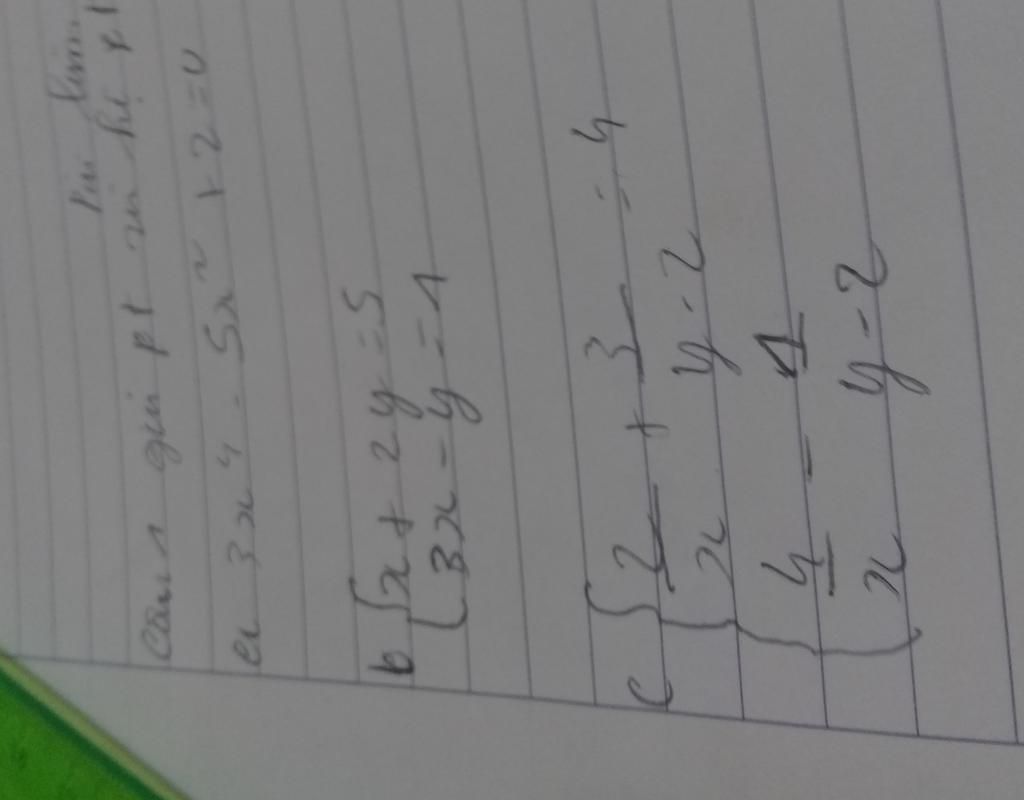 Câu 1 giải pt và hệ pt
a 3x⁴ - 5x² + 2 = 0
b { x + 2y = 5
3x - y = 1
c { 2/x + 3/y-2 = 4
4/x - 1/y-2